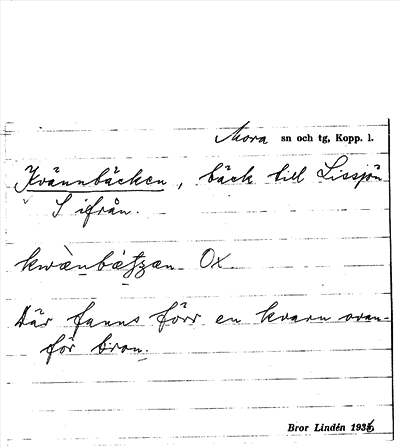 Mora sn och tg, Kopp. l.
Kvännbäcken, bäck till Lissjön
S ifrån.
kwànbɛ́tʒæn Ox.
Där fanns förr en kvarn ovan-
för bron.
Bror Lindén 1936